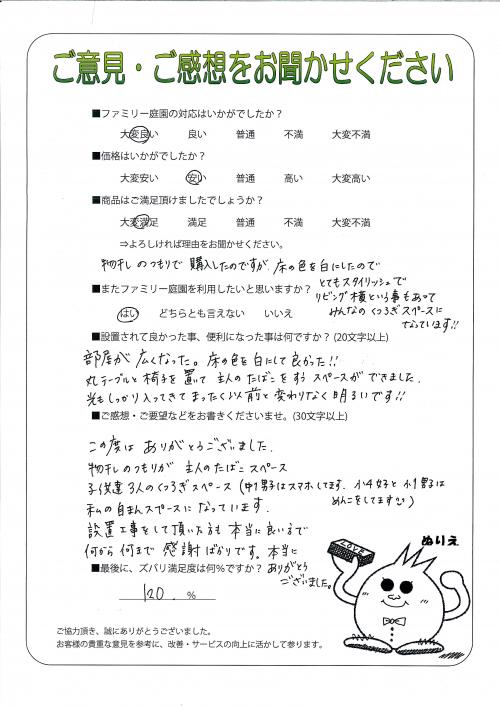 ご意見・ご感想をお聞かせください
■ファミリー庭園の対応はいかがでしたか？
大変良い 良い 普通 不満 大変不満
■価格はいかがでしたか？
大変安い 安い 普通 高い 大変高い
■商品はご満足頂けましたでしょうか？
大変満足 満足 普通 不満 大変不満
⇒よろしければ理由をお聞かせください。
物干しのつもりで購入したのですが、床の色を白にしたので
とてもスタイリッシュで
リビング横という事もあって
みんなのくつろぎスペースに
なっています!!
■またファミリー庭園を利用したいと思いますか？
はい どちらとも言えない いいえ
■設置されて良かった事、便利になった事は何ですか？(20文字以上)
部屋が広くなった。床の色を白にして良かった!!
丸テーブルと椅子を置いて主人のたばこをすうスペースができました。
光もしっかり入ってきてまったく以前と変わりなく明るいです!!
■ご感想・ご要望などをお書きくださいませ。(30文字以上)
この度はありがとうございました。
物干しのつもりが主人のたばこスペース
子供達3人のくつろぎスペース(中1男子はスマホしてます。小4女子と小1男子は
めんこをしてます)
私の自まんスペースになっています。
設置工事をして頂いた方も本当に良い方で
何から何まで感謝ばかりです。本当に
ありがとう
ございました。
■最後に、ズバリ満足度は何％ですか？
120 %
ぬりえ
LOVE
ご協力頂き、誠にありがとうございました。
お客様の貴重な意見を参考に、改善・サービスの向上に活かして参ります。